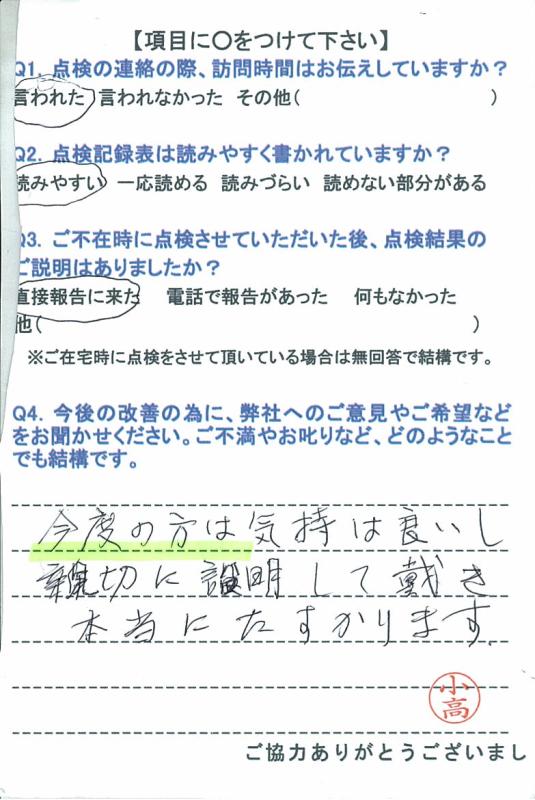 【項目に〇をつけて下さい】
Q1. 点検の連絡の際、訪問時間はお伝えしていますか？
言われた 言われなかった その他( )
Q2. 点検記録表は読みやすく書かれていますか？
読みやすい 一応読める 読みづらい 読めない部分がある
Q3. ご不在時に点検させていただいた後、点検結果の
ご説明はありましたか？
直接報告に来た 電話で報告があった 何もなかった
他( )
※ご在宅時に点検をさせて頂いている場合は無回答で結構です。
Q4. 今後の改善の為に、弊社へのご意見やご希望など
をお聞かせください。ご不満やお叱りなど、どのようなこと
でも結構です。
今度の方は気持は良いし
親切に説明して戴き
本当にたすかります.
小
高
ご協力ありがとうございまし